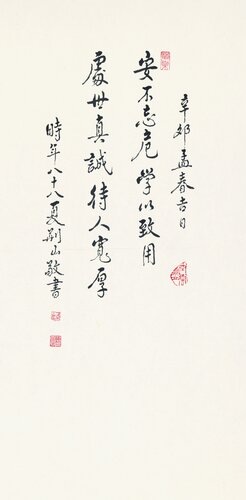 辛卯孟春吉日
安不忘危学以致用
處世真誠待人寬厚
時年八十八夏荊山敬書